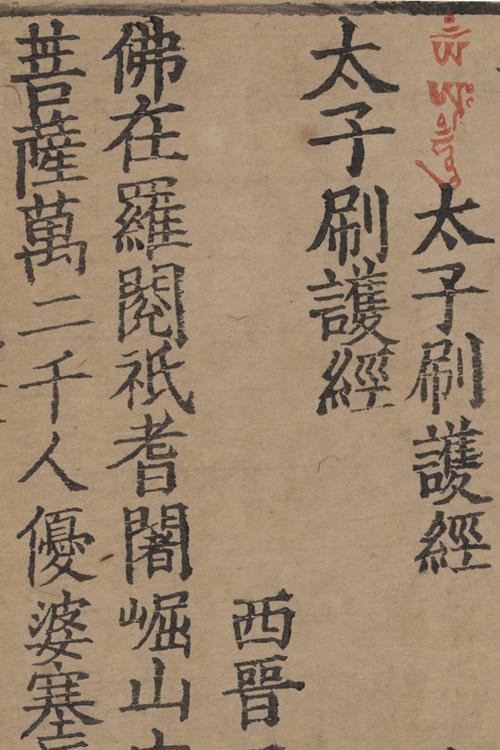 太子刷護經
太子刷護經
西晉
佛在羅閱祇耆闍崛山
菩薩萬二千人優婆塞